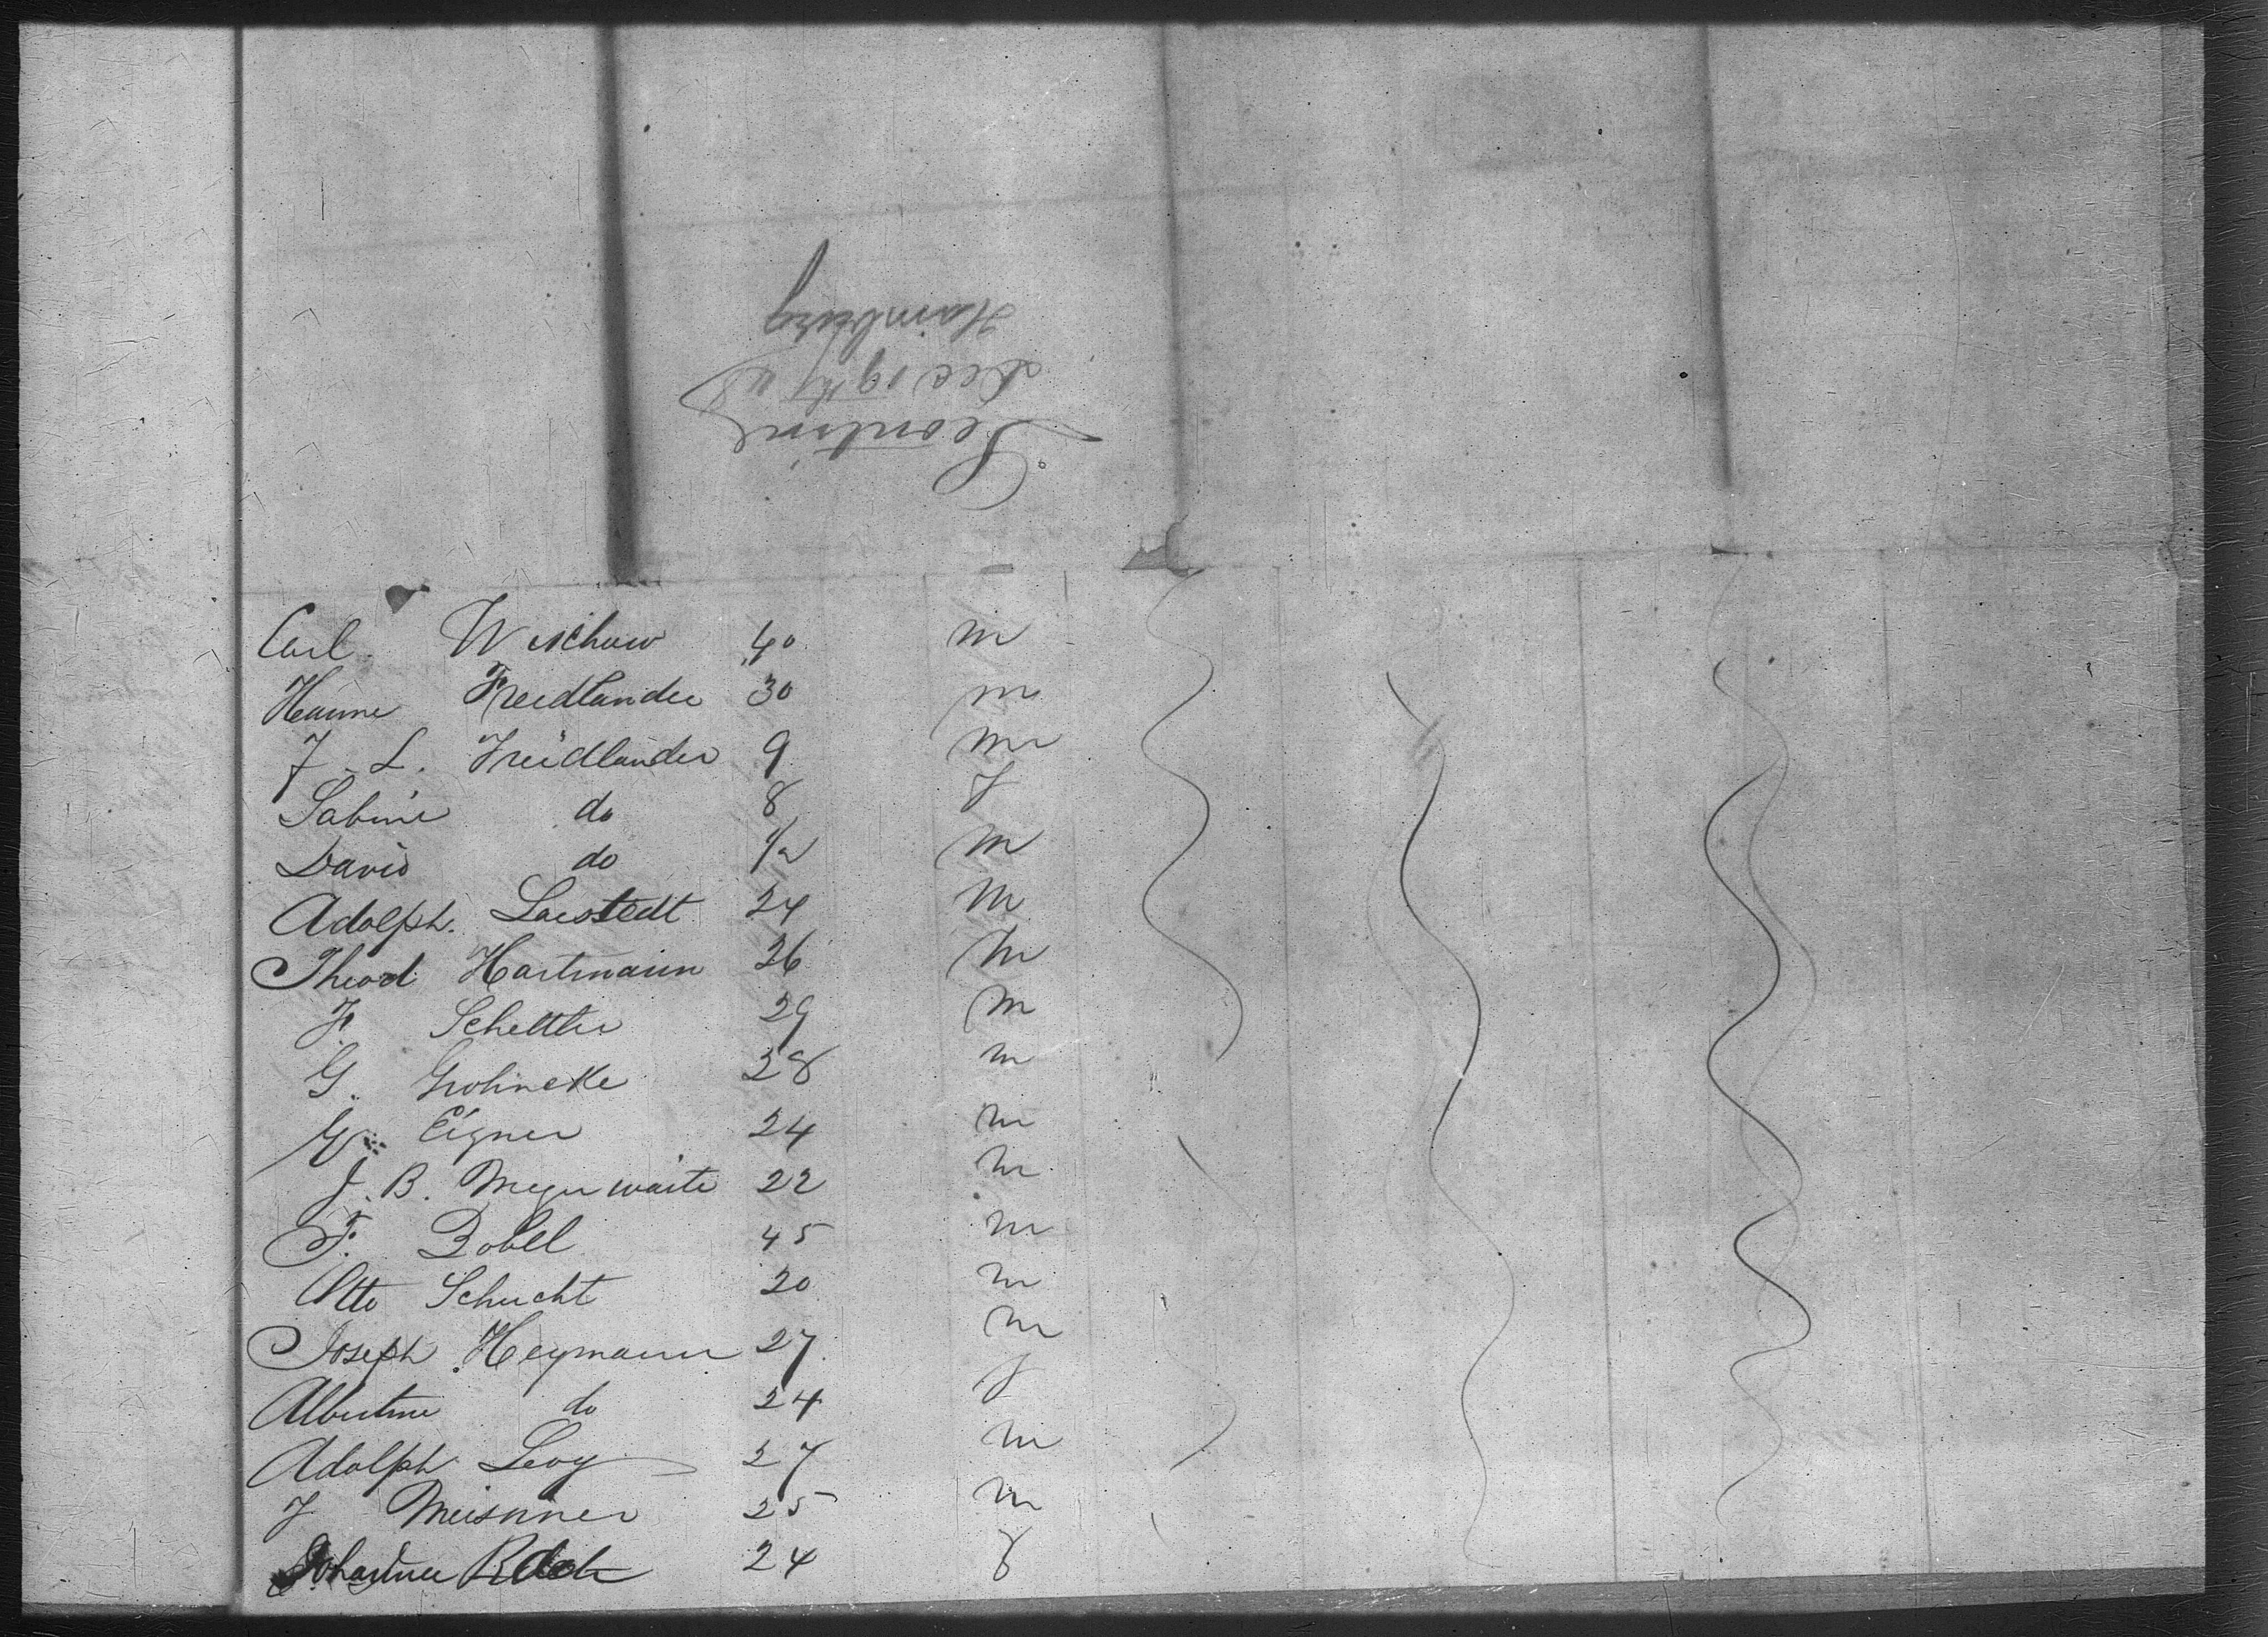 Leontine
Dec 19th 48
Hamburg
Carl Wischow 40 m
Hanne Friedlander 30 m
J. L. Friedlander 9 m
Sabine do 8 f
David do 1/2 m
Adolph. Laistedt 24 m
Theod Hartmann 26 m
F. Schettler 29 m
G. Grohneke 28 m
Eigner 24 m
J. B. Meyerwaite 22 m
F. Bobel 45 m
Otto Schucht 20 m
Joseph Heymann 27 m
Albertine do 24 f
Adolph Levy 27 m
J Meisnner 25 m
Johanne 24 f